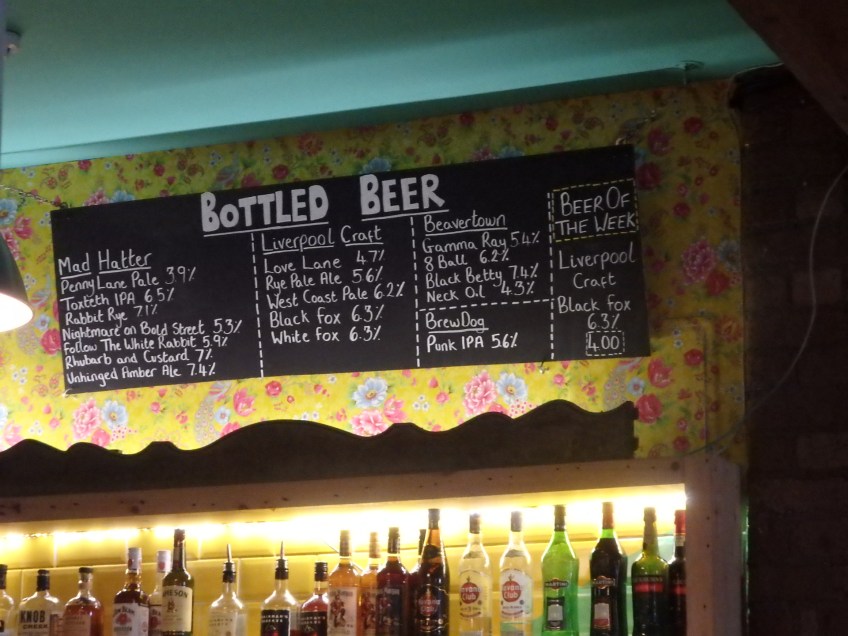 BOTTLED BEER
Mad Hatter
Penny Lane Pale 3.9%
Toxteth IPA 6.5%
Rabbit Rye 7.1%
Nightmare on Bold Street 5.3%
Follow The White Rabbit 5.9%
Rhubarb and Custard 7%
Unhinged Amber Ale 7.4%
Liverpool Craft
Love Lane 4.7%
Rye Pale Ale 5.6%
West Coast Pale 6.2%
Black Fox 6.3%
White Fox 6.3%
Beavertown
Gamma Ray 5.4%
8 Ball 6.2%
Black Betty 7.4%
Neck Oil 4.3%
BrewDog
Punk IPA 5.6%
BEER OF
THE WEEK
Liverpool
Craft
Black Fox
6.3%
4.00
KNOB
JAMESON
Havana
Club